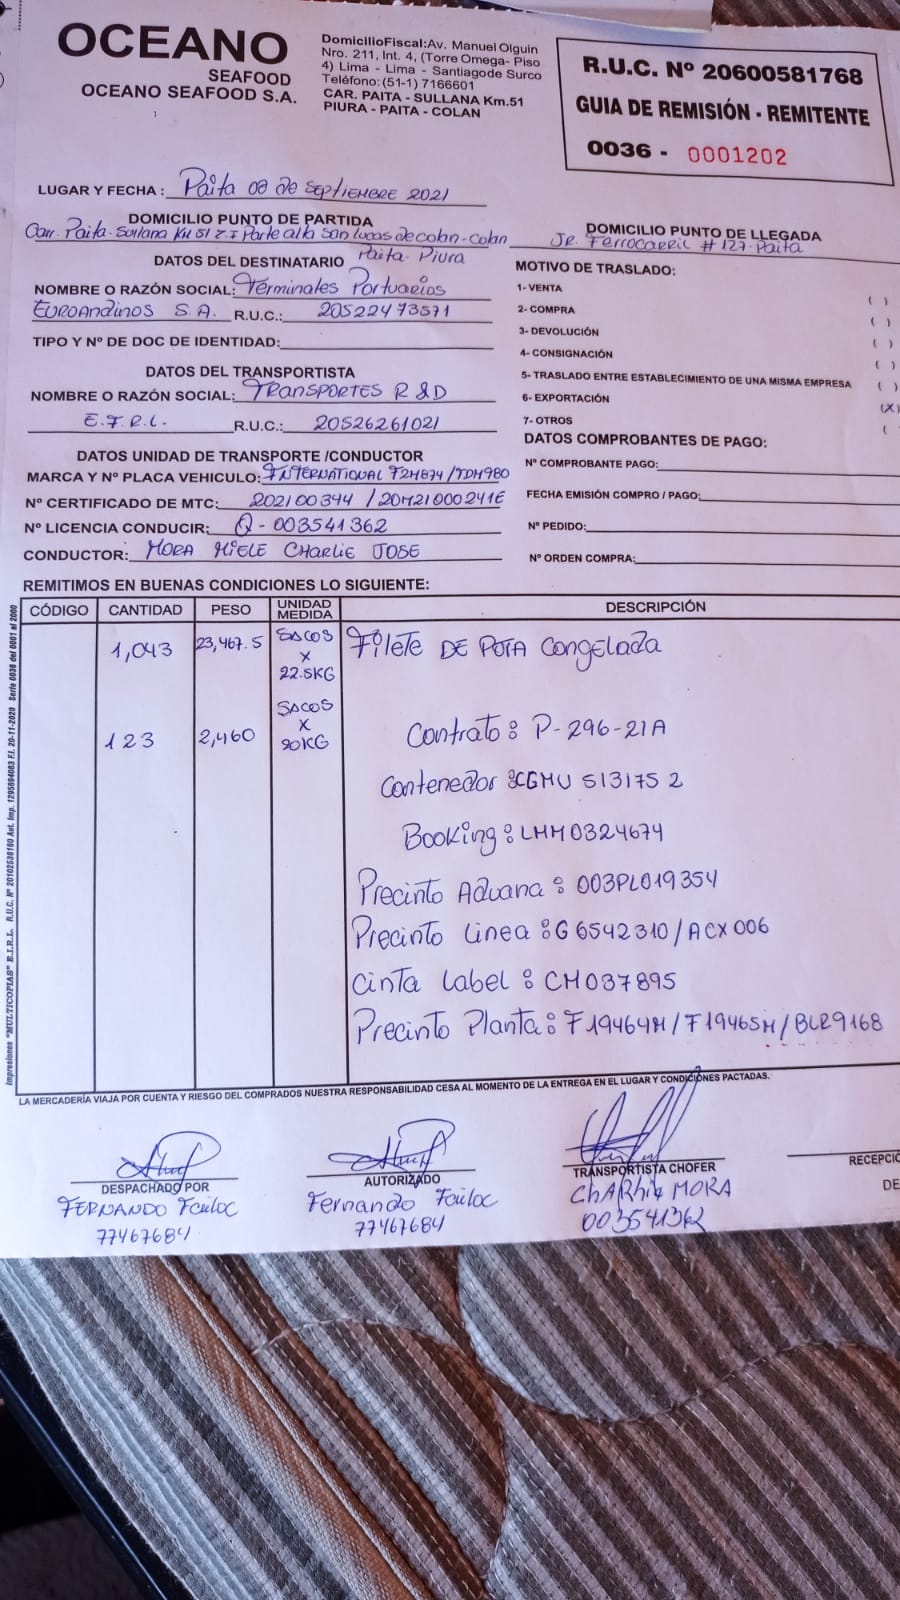 OCEANO
SEAFOOD
OCEANO SEAFOOD S.A.
DomicilioFiscal:Av. Manuel Olguin
Nro. 211, Int. 4, (Torre Omega- Piso
4) Lima - Lima - Santiagode Surco
Teléfono:(51-1) 7166601
CAR. PAITA - SULLANA Km.51
PIURA - PAITA - COLAN
R.U.C. Nº 20600581768
GUIA DE REMISIÓN - REMITENTE
0036 - 0001202
LUGAR Y FECHA : Paita 08 de Septiembre 2021
DOMICILIO PUNTO DE PARTIDA
Carr. Paita-Sullana Km 51 Z.I Parte alta San Lucas de colan-Colan
Paita- Piura
DOMICILIO PUNTO DE LLEGADA
Jr. Ferrocarril # 127-Paita
DATOS DEL DESTINATARIO
NOMBRE O RAZÓN SOCIAL: Terminales Portuarios
EuroAndinos S.A. R.U.C.: 20522473571
TIPO Y Nº DE DOC DE IDENTIDAD:
DATOS DEL TRANSPORTISTA
NOMBRE O RAZÓN SOCIAL: Transportes R&D
E.I.R.L. R.U.C.: 20526261021
DATOS UNIDAD DE TRANSPORTE /CONDUCTOR
MARCA Y Nº PLACA VEHICULO: INTERNATIONAL F2M874/TDM980
Nº CERTIFICADO DE MTC: 202100344 / 20M21000241E
Nº LICENCIA CONDUCIR: Q-003541362
CONDUCTOR: MORA MIELE CHARLIE JOSE
MOTIVO DE TRASLADO:
1- VENTA ( )
2- COMPRA ( )
3- DEVOLUCIÓN ( )
4- CONSIGNACIÓN ( )
5- TRASLADO ENTRE ESTABLECIMIENTO DE UNA MISMA EMPRESA ( )
6- EXPORTACIÓN (X)
7- OTROS (
DATOS COMPROBANTES DE PAGO:
Nº COMPROBANTE PAGO:
FECHA EMISIÓN COMPRO / PAGO:
Nº PEDIDO:
Nº ORDEN COMPRA:
REMITIMOS EN BUENAS CONDICIONES LO SIGUIENTE:
CÓDIGO CANTIDAD PESO UNIDAD MEDIDA DESCRIPCIÓN
1,043 23,467.5 SACOS X 22.5KG Filete DE POTA Congelada
123 2,460 SACOS X 20KG Contrato: P-296-21A
Contenedor: CGMU 513175 2
Booking: LMM0324674
Precinto Aduana: 003PL019354
Precinto Linea: G6542310/ACX006
Cinta Label: CM037895
Precinto Planta: F19464M/F19465M/BLR9168
Impresiones "MULTICOPIAS" E.I.R.L. R.U.C. Nº 20102536160 Aut. Imp. 1295694063 F.I. 20-11-2020 Serie 0036 del 0001 al 2000
LA MERCADERÍA VIAJA POR CUENTA Y RIESGO DEL COMPRADOS NUESTRA RESPONSABILIDAD CESA AL MOMENTO DE LA ENTREGA EN EL LUGAR Y CONDICIONES PACTADAS.
DESPACHADO POR
FERNANDO
77467684
AUTORIZADO
Fernando
77467684
TRANSPORTISTA CHOFER
CHARLIE MORA
003541362
RECEPCIÓ
DE